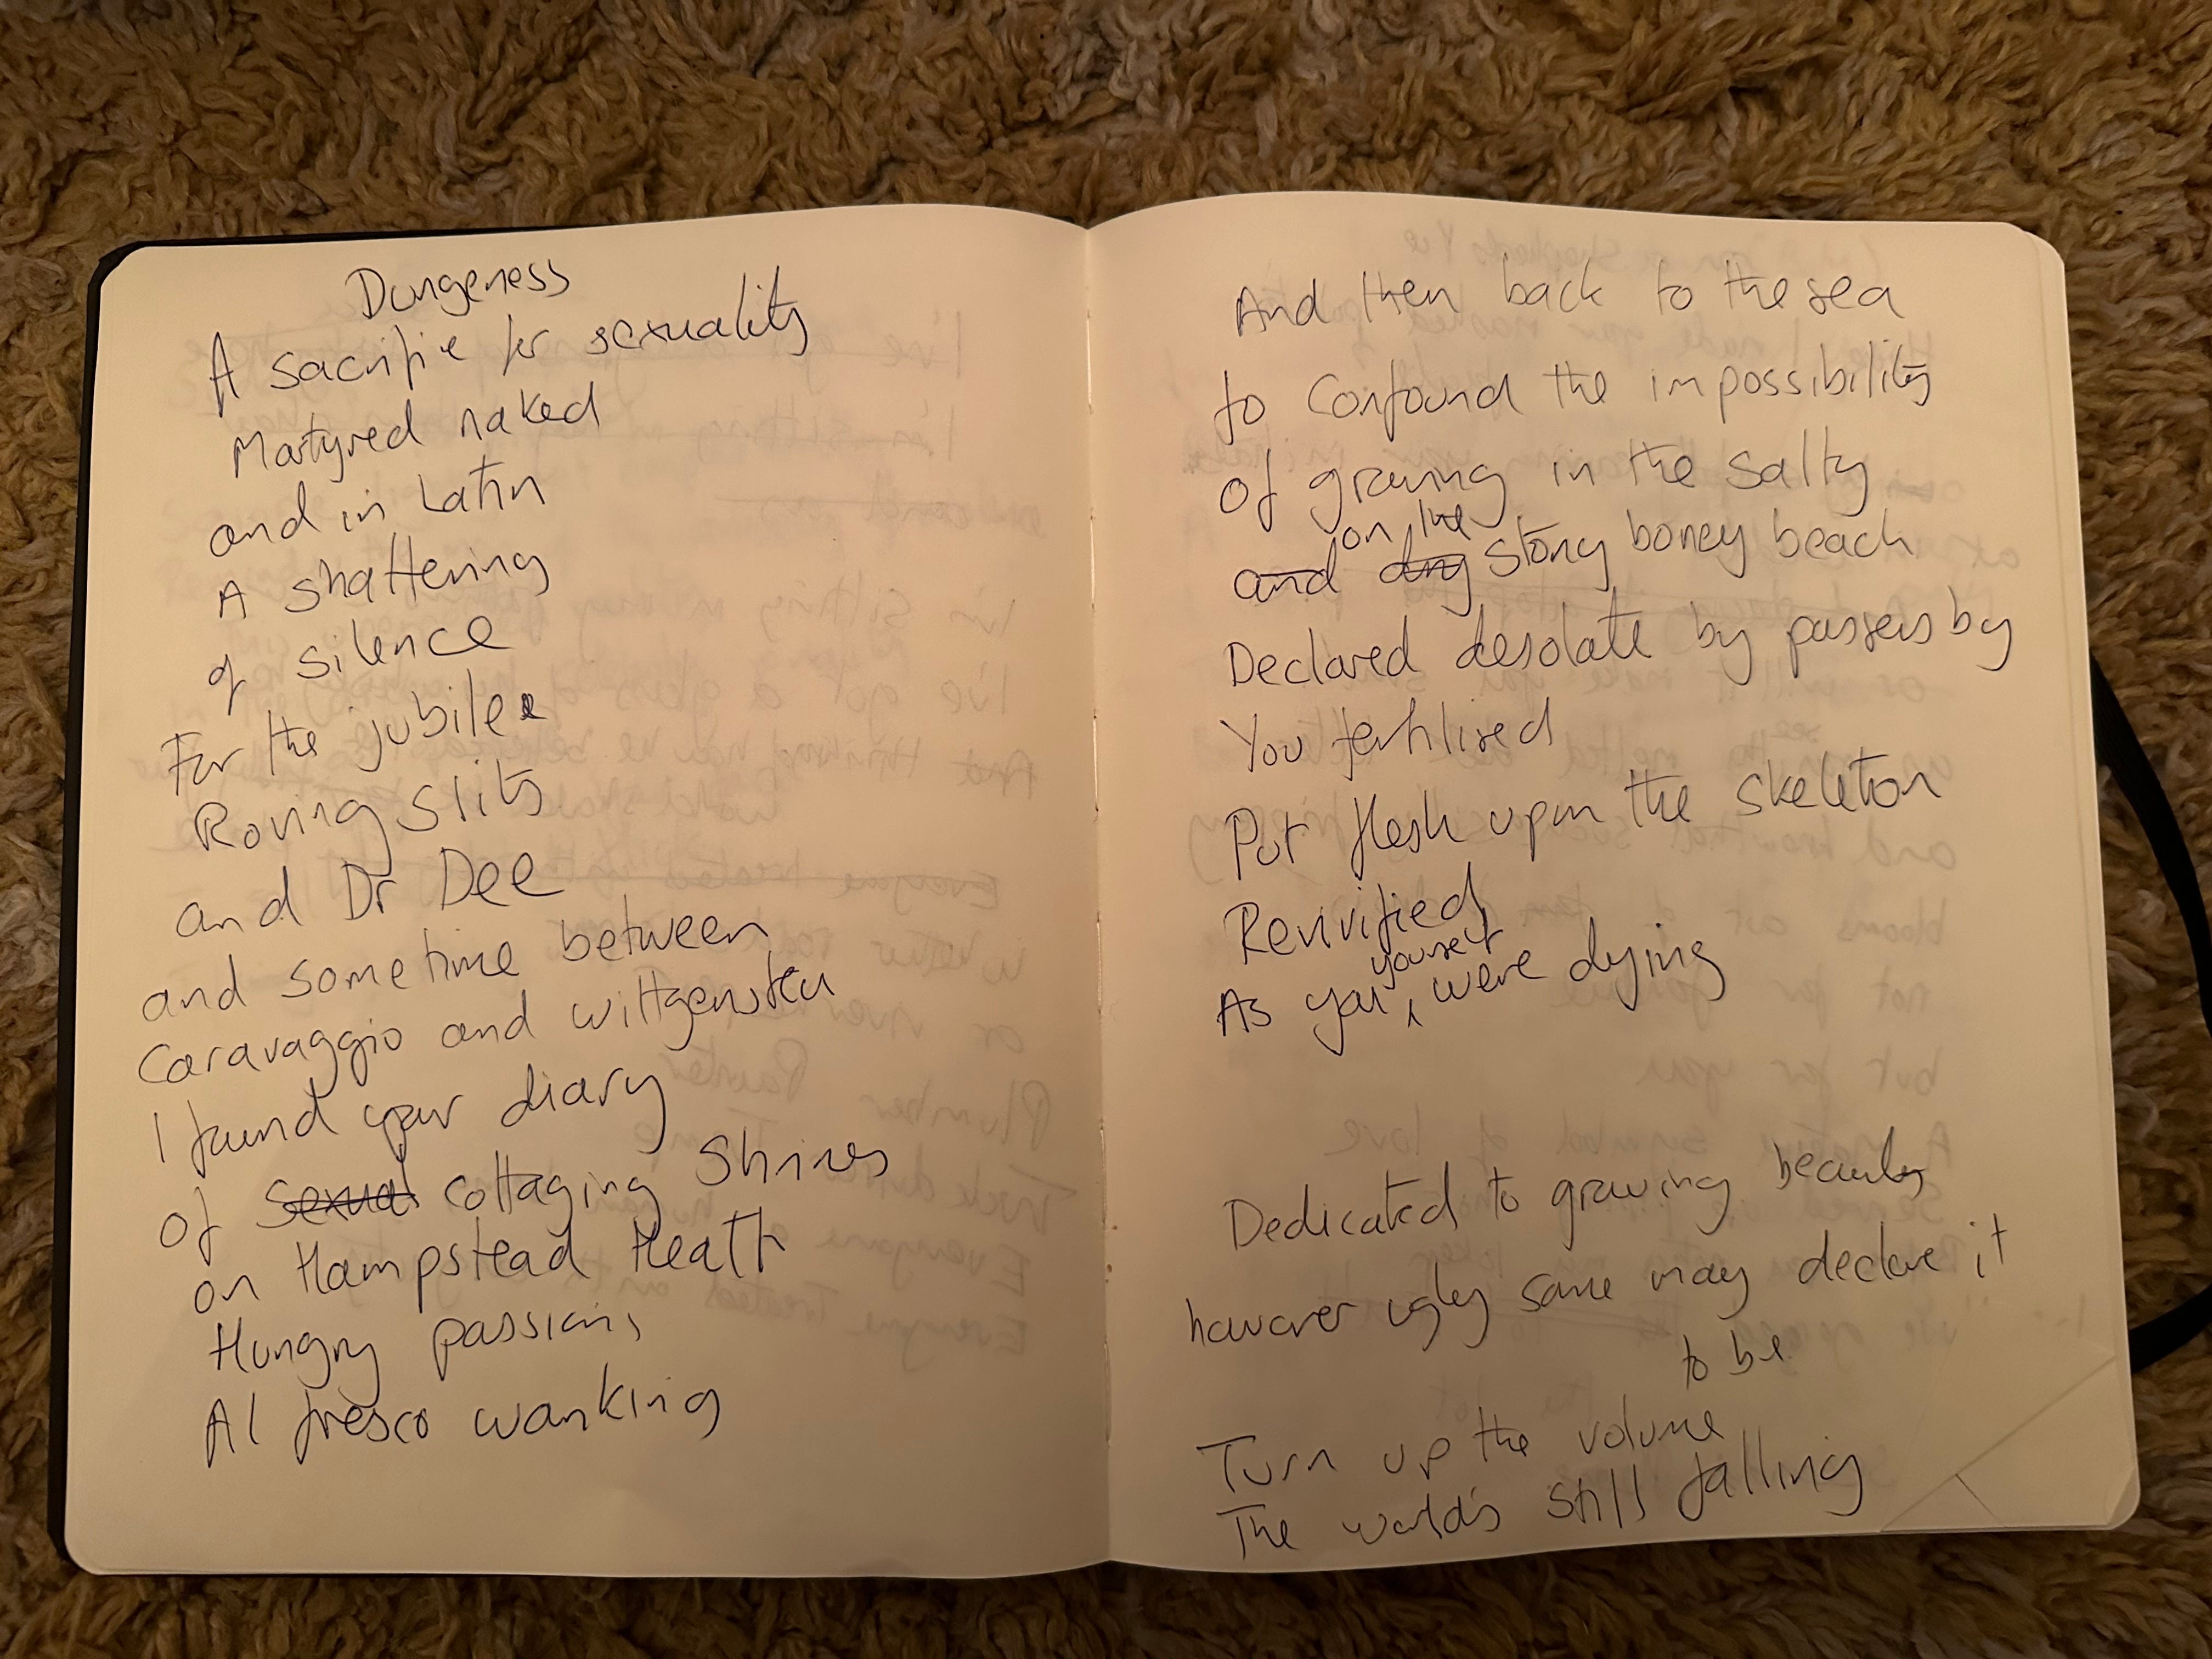 Dungeness
A sacrifie for sexuality
Martyred naked
and in Latin
A shattering
of silence
For the jubilee
Roving Slits
and Dr Dee
and sometime between
Caravaggio and wittgenstein
I found your diary
Of sexual cottaging Shrines
on Hampstead Heath
Hungry passions
Al fresco wanking
And then back to the sea
to Confound the impossibility
Of growing in the salty
on the
and dry stony boney beach
Declared desolate by passers by
You fertilised
Put flesh upon the skeleton
Revivified
yourself
As you were dying
Dedicated to growing beauty
however ugly some may declare it
to be
Turn up the volume
The world's still falling